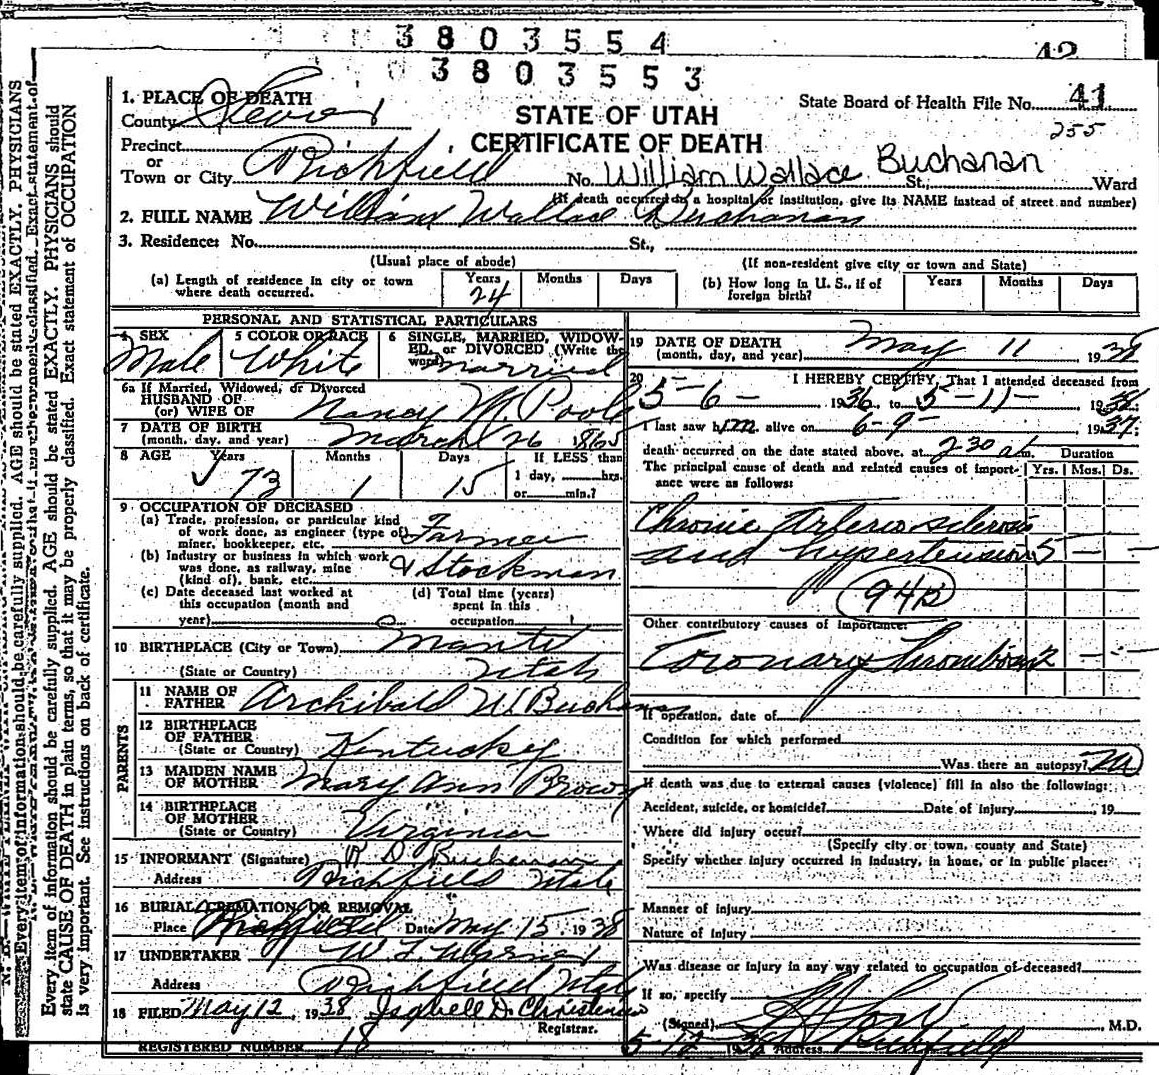 3803554
42
3803553
STATE OF UTAH
CERTIFICATE OF DEATH
State Board of Health File No. 41
255
1. PLACE OF DEATH
County Sevier
Precinct
or
Town or City Richfield No. William Wallace Buchanan St., Ward
(If death occurred in a hospital or institution, give its NAME instead of street and number)
2. FULL NAME William Wallace Buchanan
3. Residence: No. St.,
(Usual place of abode) (If non-resident give city or town and State)
(a) Length of residence in city or town where death occurred. Years 24 Months Days
(b) How long in U. S., if of foreign birth? Years Months Days
PERSONAL AND STATISTICAL PARTICULARS
4 SEX Male
5 COLOR OR RACE White
6 SINGLE, MARRIED, WIDOWED, or DIVORCED (Write the word) married
6a If Married, Widowed, or Divorced
HUSBAND OF
(or) WIFE OF Nancy M. Poole
7 DATE OF BIRTH
(month, day, and year) March 26 1865
8 AGE Years 73 Months 1 Days 15 If LESS than
1 day, hrs.
or min.?
9 OCCUPATION OF DECEASED
(a) Trade, profession, or particular kind
of work done, as engineer (type of)
miner, bookkeeper, etc. Farmer
(b) Industry or business in which work
was done, as railway, mine
(kind of), bank, etc. & Stockman
(c) Date deceased last worked at
this occupation (month and
year)
(d) Total time (years)
spent in this
occupation
10 BIRTHPLACE (City or Town) Manti
(State or Country) Utah
PARENTS
11 NAME OF
FATHER Archibald W. Buchanan
12 BIRTHPLACE
OF FATHER
(State or Country) Kentucky
13 MAIDEN NAME
OF MOTHER Mary Ann Brown
14 BIRTHPLACE
OF MOTHER
(State or Country) Virginia
15 INFORMANT (Signature) R. D. Buchanan
Address Richfield Utah
16 BURIAL, CREMATION, OR REMOVAL
Place Richfield Date May 15, 1938
17 UNDERTAKER
Address Richfield Utah
18 FILED May 12, 1938 Isabell D. Christensen
Registrar.
REGISTERED NUMBER 18
19 DATE OF DEATH
(month, day, and year) May 11 1938
20 I HEREBY CERTIFY, That I attended deceased from
5-6- 1936, to 5-11- 1938
I last saw him alive on 6-9- 1937;
death occurred on the date stated above, at 2:30 a m. Duration
The principal cause of death and related causes of importance were as follows: Yrs. Mos. Ds.
Chronic Arterio sclerosis
and hypertension 5 - -
94B
Other contributory causes of importance:
Coronary Thrombosis 2 - -
If operation, date of
Condition for which performed
Was there an autopsy? no
If death was due to external causes (violence) fill in also the following:
Accident, suicide, or homicide? Date of injury 19
Where did injury occur?
(Specify city or town, county and State)
Specify whether injury occurred in industry, in home, or in public place:
Manner of injury
Nature of injury
Was disease or injury in any way related to occupation of deceased?
If so, specify
(Signed) M.D.
5-12 1938 Address Richfield
Every item of information should be carefully supplied. AGE should be stated EXACTLY. PHYSICIANS should
state CAUSE OF DEATH in plain terms, so that it may be properly classified. Exact statement of OCCUPATION
is very important. See instructions on back of certificate.